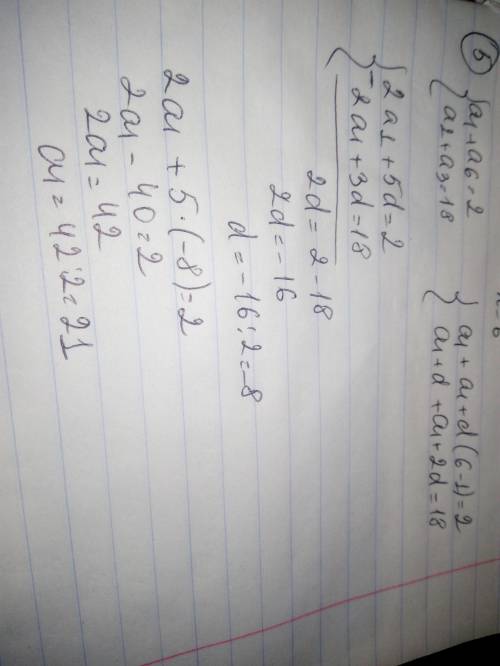 5) { a1 + a6 = 2
{ a2 + a3 = 18
{ a1 + a1 + d(6-1) = 2
{ a1 + d + a1 + 2d = 18
{ 2a1 + 5d = 2
{ - 2a1 + 3d = 18
2d = 2 - 18
2d = -16
d = -16 : 2 = -8
2a1 + 5 · (-8) = 2
2a1 - 40 = 2
2a1 = 42
a1 = 42 : 2 = 21